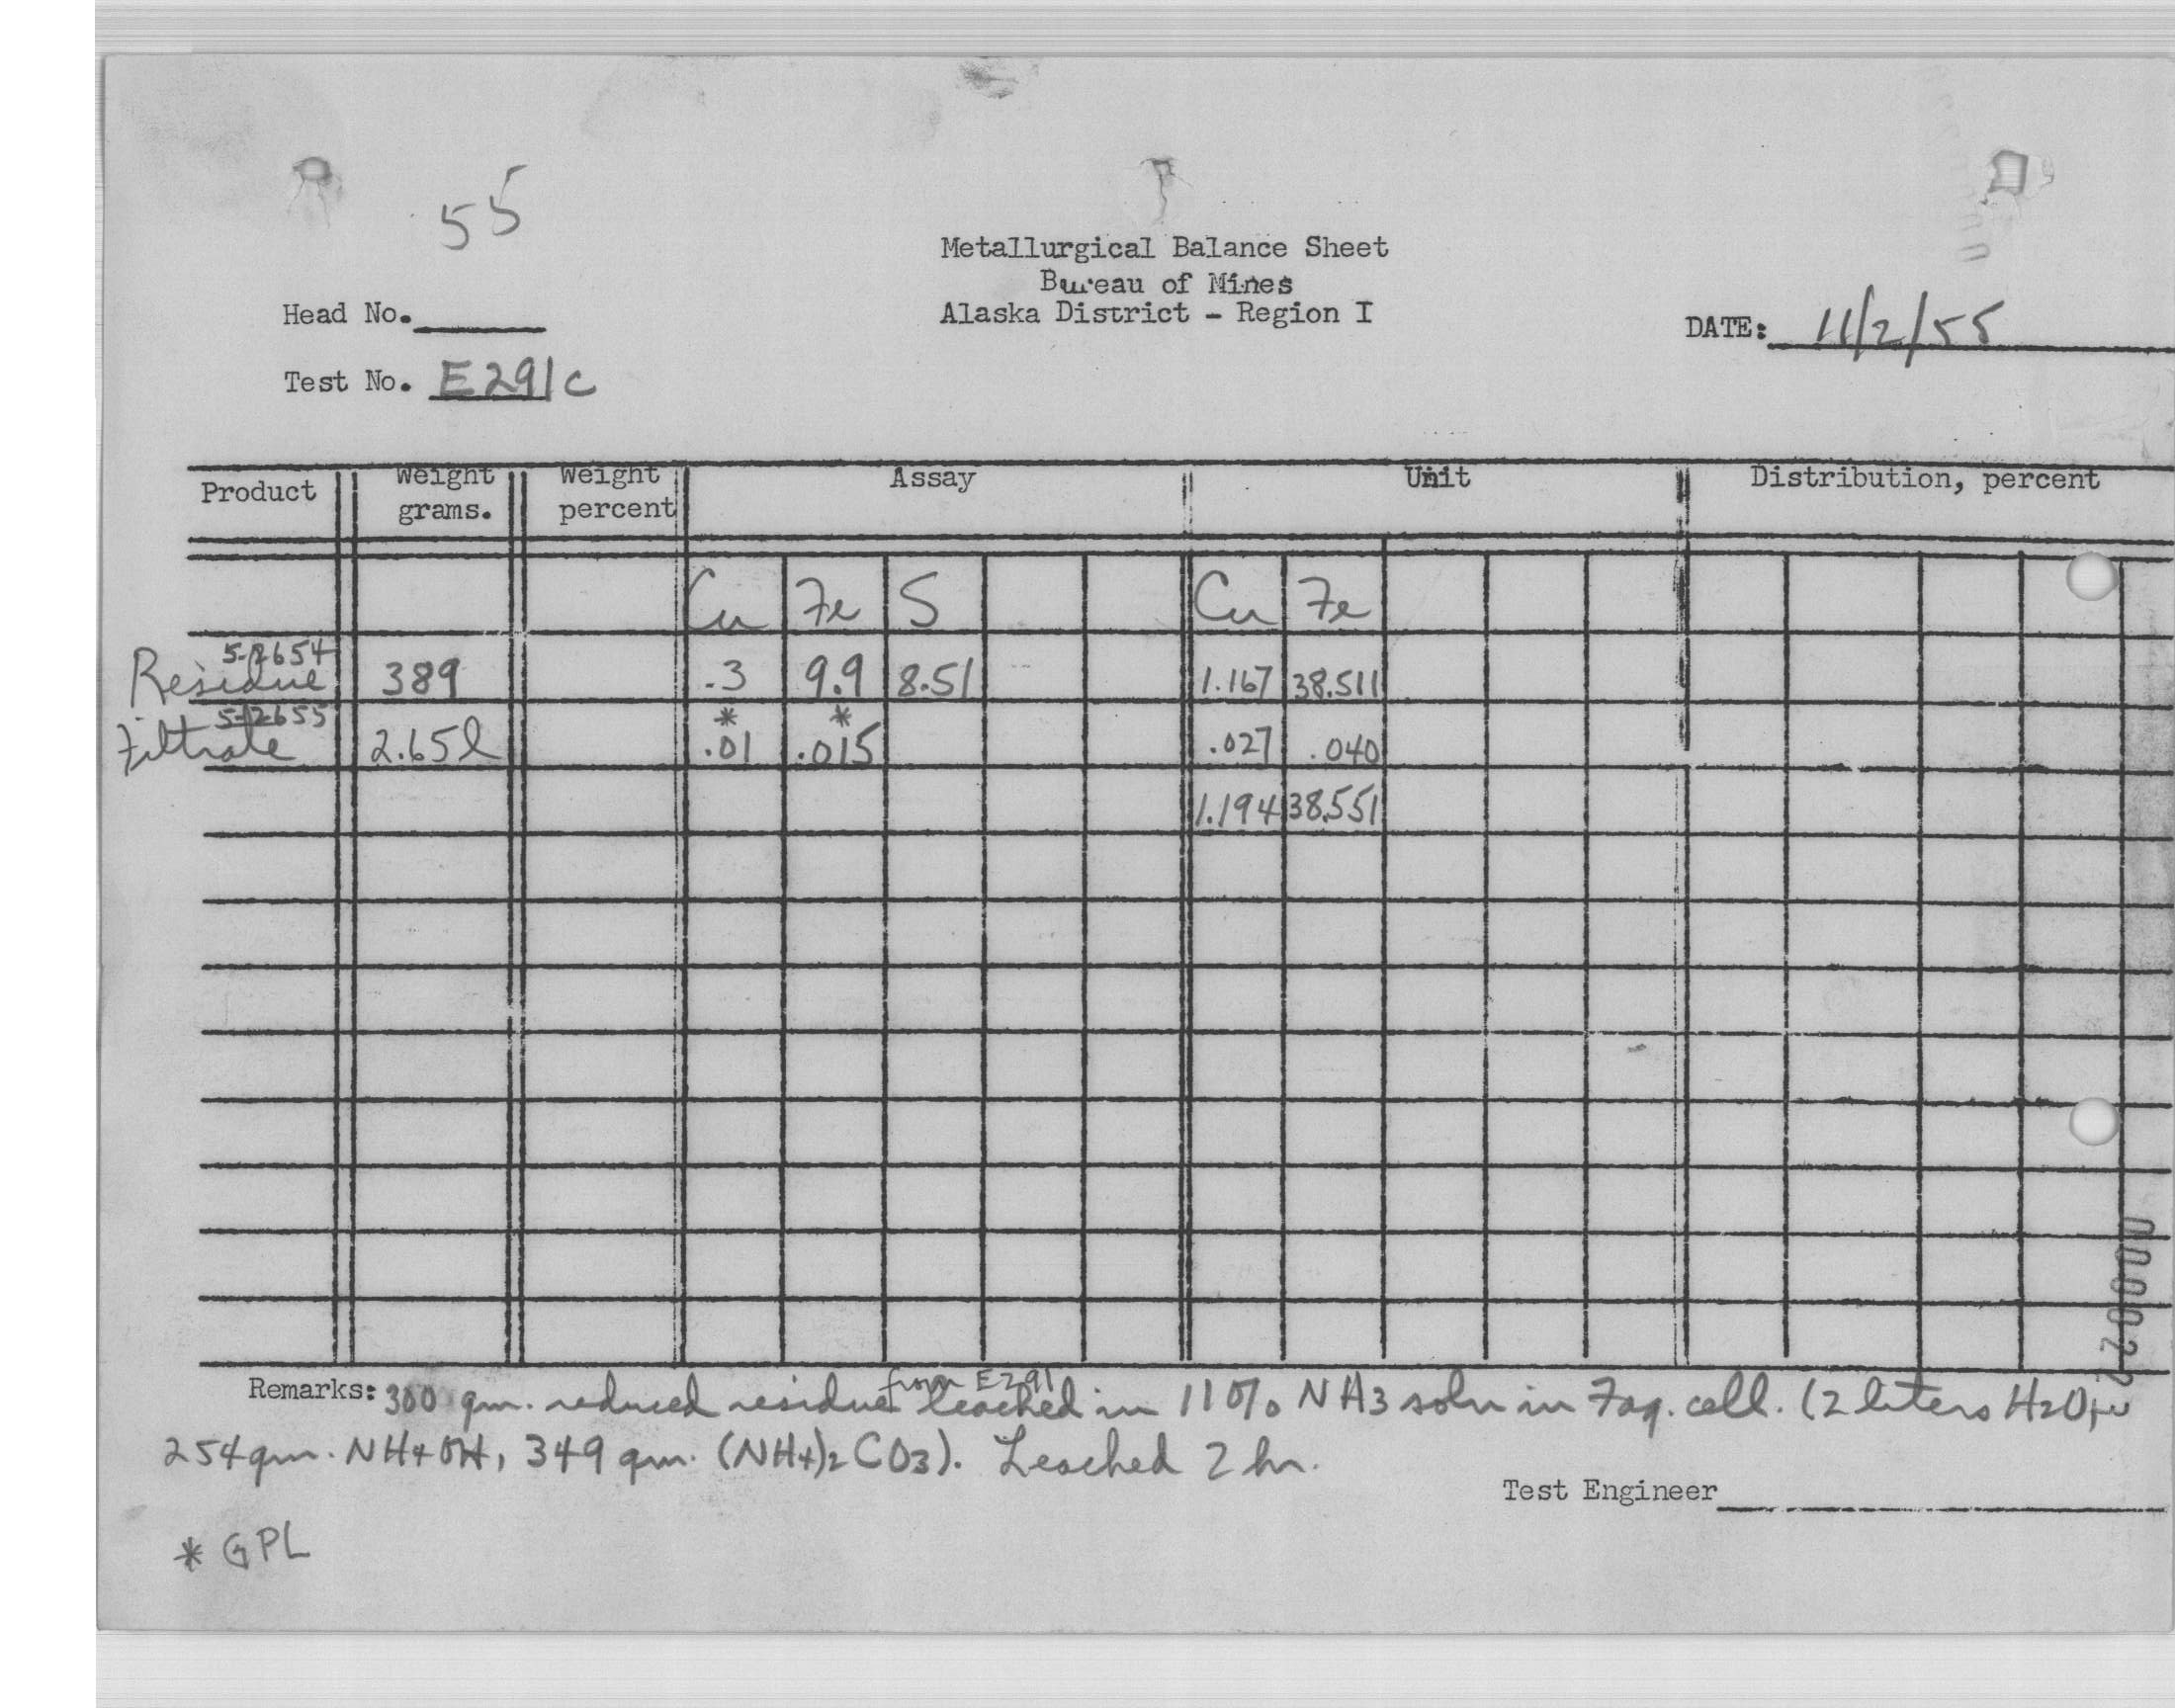 55
Metallurgical Balance Sheet
Bureau of Mines
Alaska District - Region I
Head No.
DATE: 11/2/55
Test No. E291c
Product Weight grams. Weight percent Assay Unit Distribution, percent
Cu Fe S Cu Fe
5-2654
Residue 389 .3 9.9 8.51 1.167 38.511
5-2655 * *
Filtrate 2.65l .01 .015 .027 .040
1.194 38.551
from E291
Remarks: 300 gm. reduced residue leached in 11% NH3 soln in Fag. cell. (2 liters H2O,
254 gm. NH4OH, 349 gm. (NH4)2CO3). Leached 2 hr.
Test Engineer
* GPL
000022